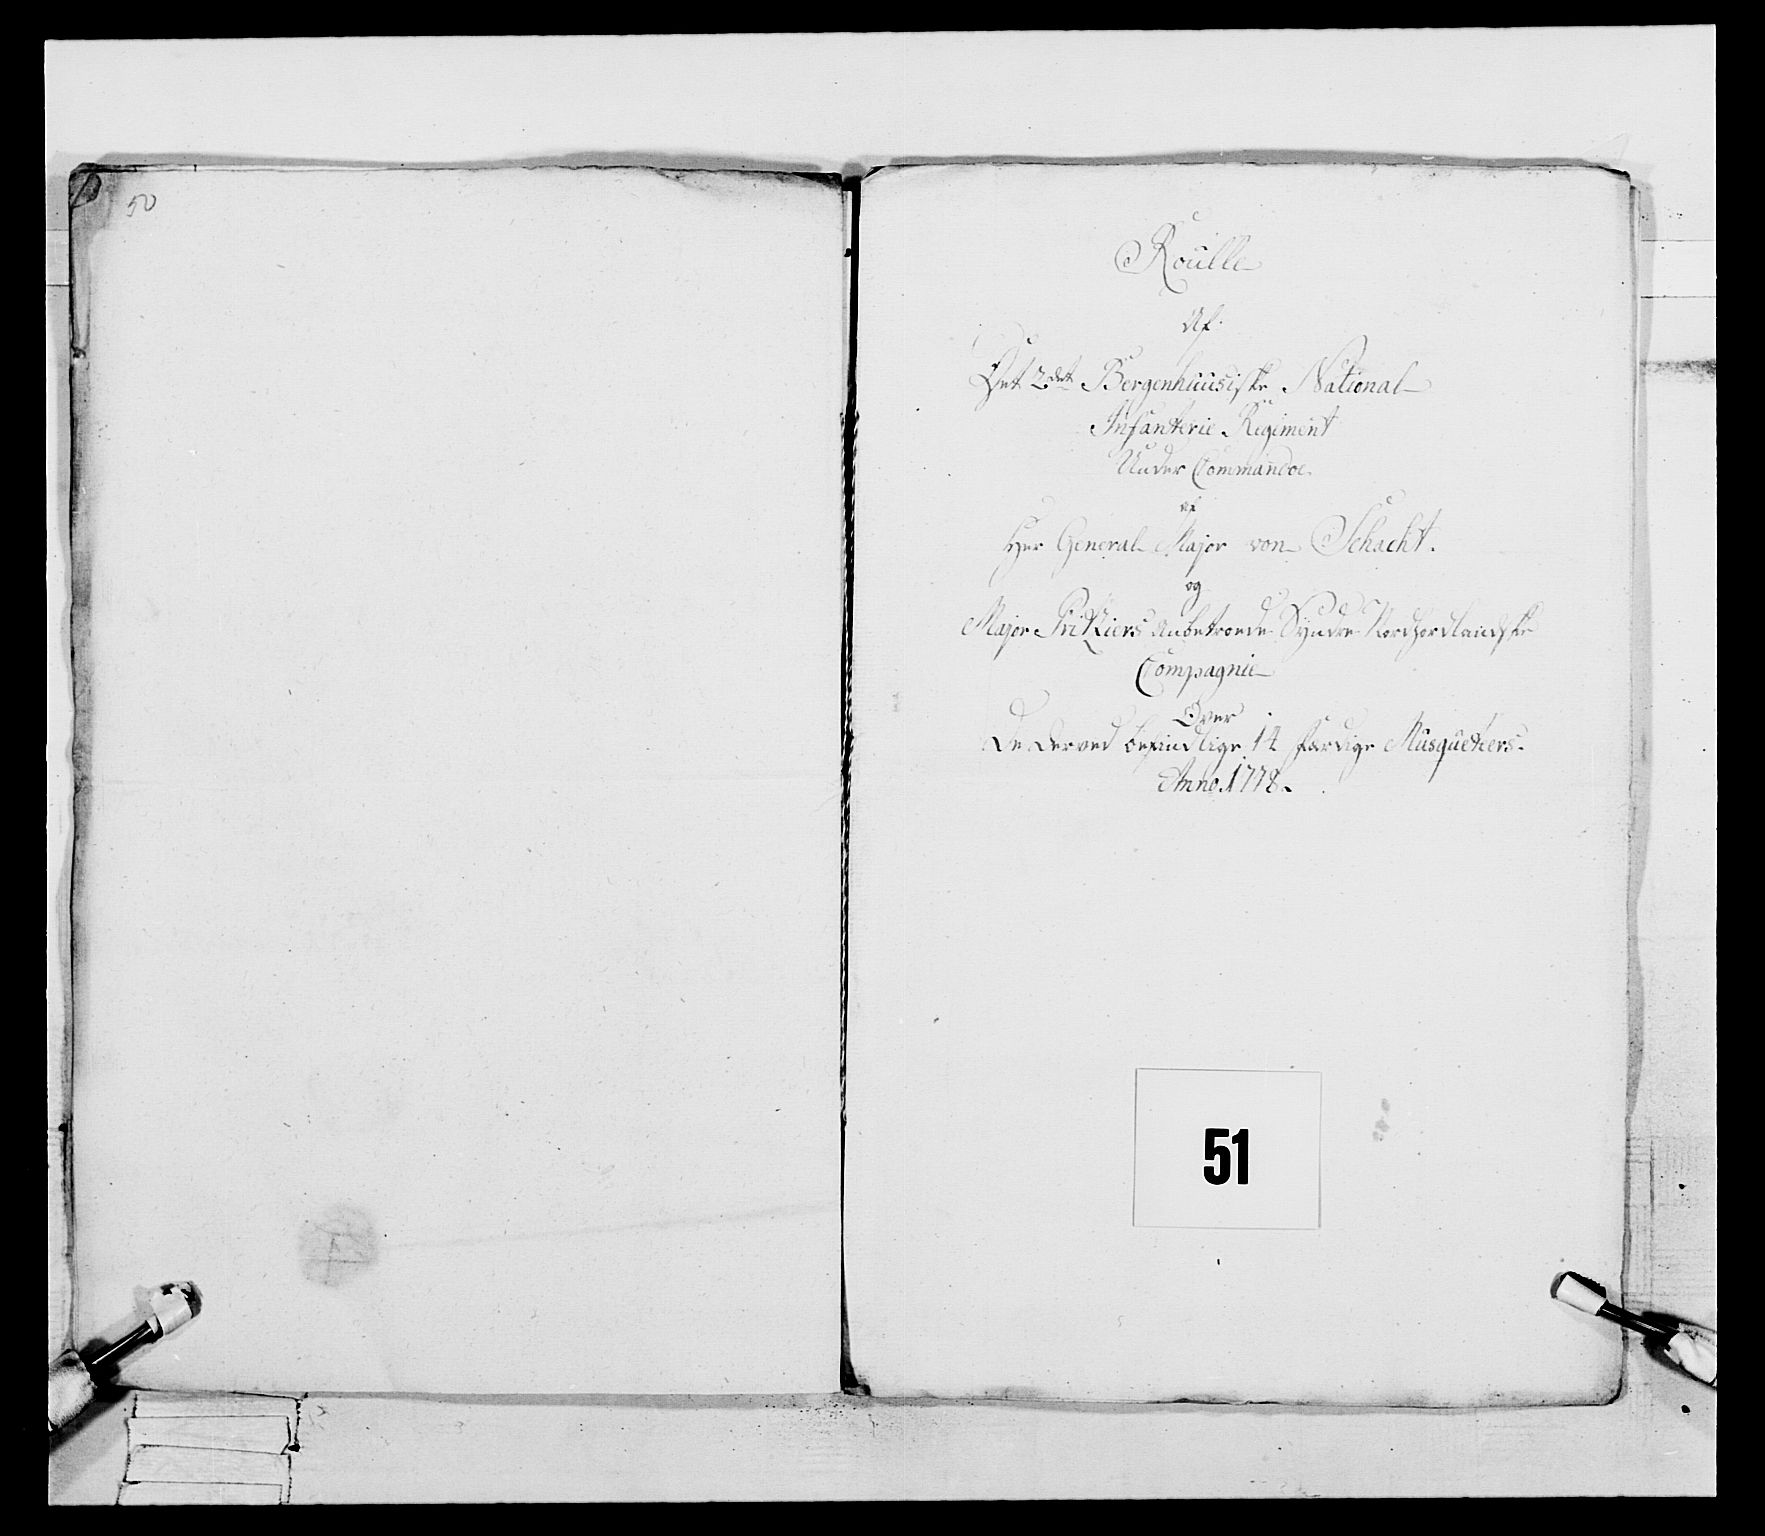 50
Roulle
Af
Det 2det Bergenhuusiske National
Infanterie Regiment
Under Commandoe
af
Herr General Major von Schacht.
og
Major Pritziers anbetroede Syndre Nordhordlandske
Compagnie
Over
De derved befindlige 14 færdige Musqueteers.
Anno 1778.
51